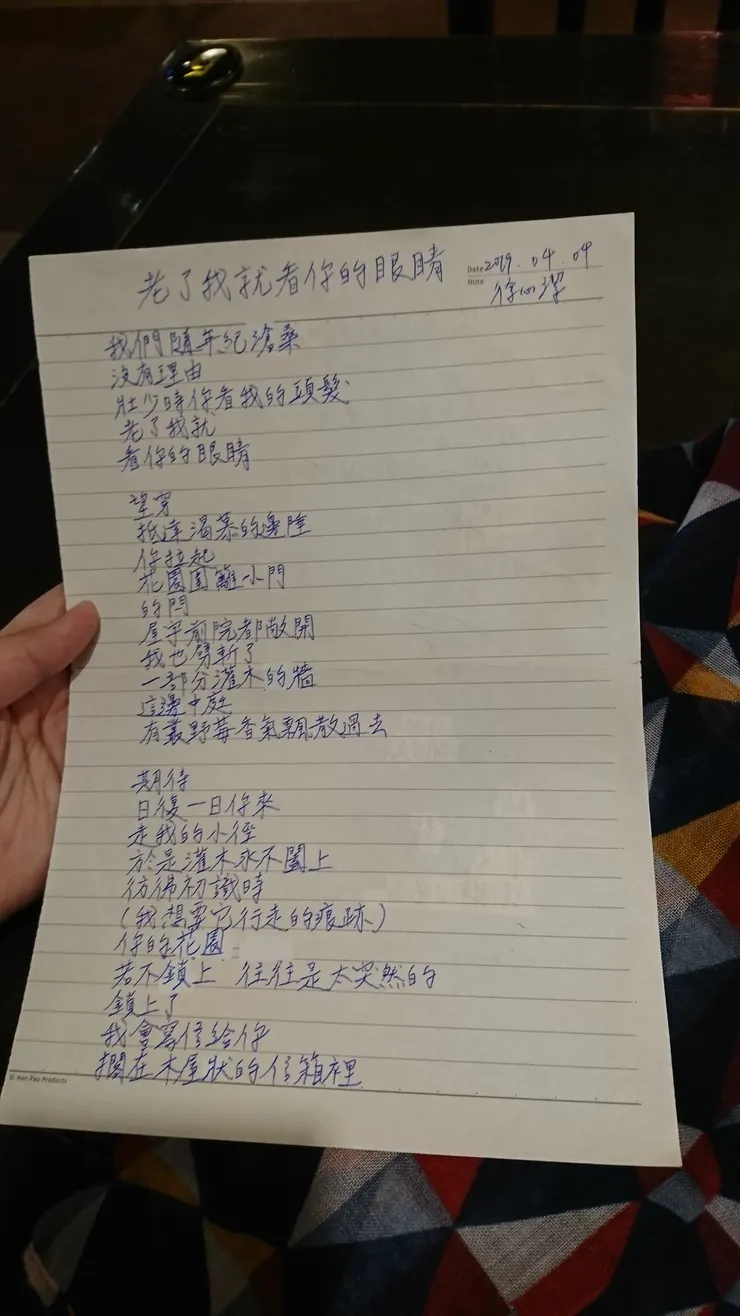 老了我就看你的眼睛
Date 2019.04.04
Note 徐心潔
我們隨年紀滄桑
沒有理由
壯少時你看我的頭髮
老了我就
看你的眼睛
望穿
抵達渴慕的邊陲
你拉起
花園圍籬小門
的閂
屋宇前院都敞開
我也劈斬了
一部分灌木的牆
這邊中庭
有叢野莓香氣飄散過去
期待
日復一日你來
走我的小徑
於是灌木永不闔上
彷彿初識時
(我想要它行走的痕跡)
你的花園
若不鎖上 往往是太突然的
鎖上了
我會寫信給你
擱在木屋狀的信箱裡
© Han Pao Products